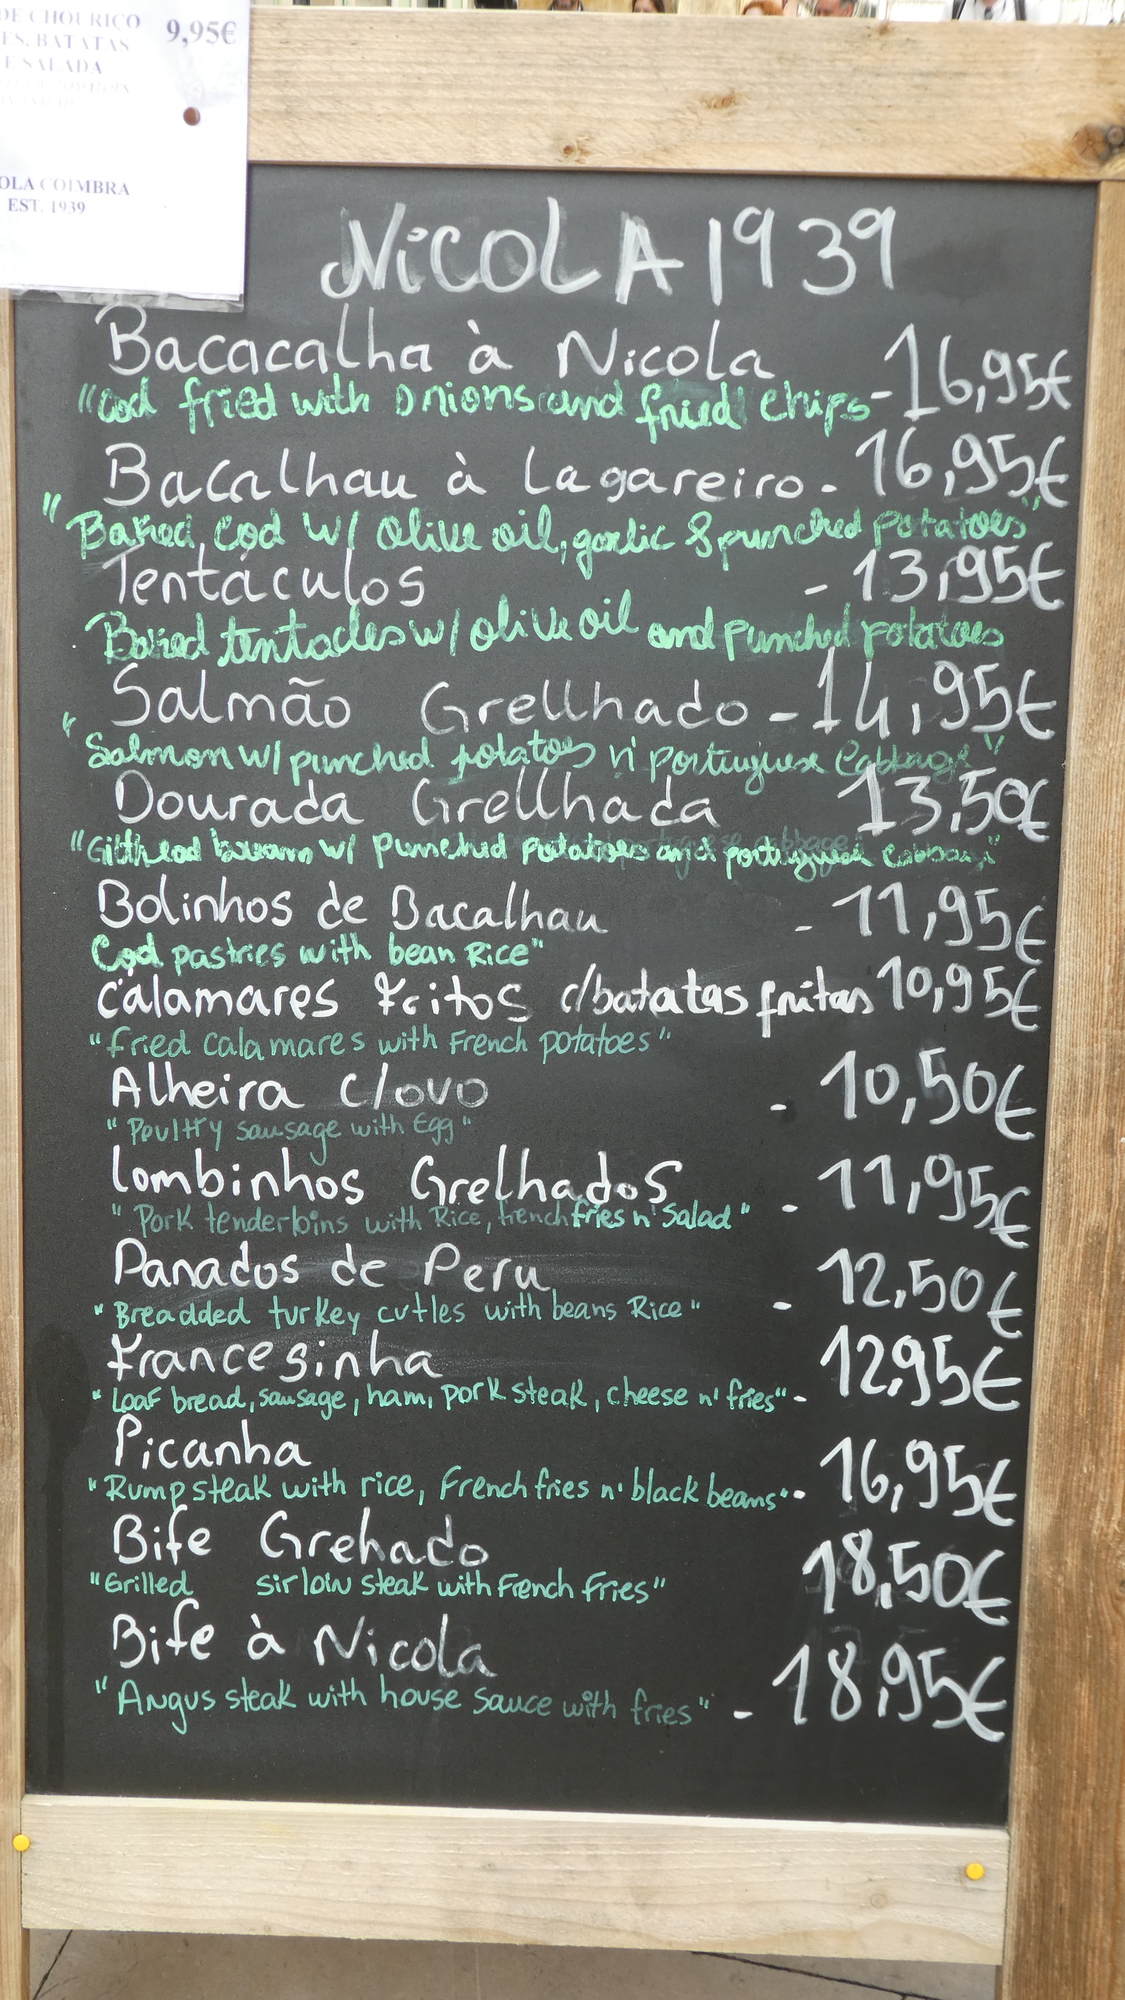 DE CHOURIÇO 9,95€
ES, BATATAS
E SALADA
OLA COIMBRA
EST. 1939
NICOLA 1939
Bacacalha à Nicola - 16,95€
"Cod fried with onions and fried chips
Bacalhau à Lagareiro - 16,95€
"Baked Cod w/ olive oil, garlic & punched potatoes"
Tentáculos - 13,95€
Baked tentacles w/ olive oil and punched potatoes
Salmão Grellhado - 14,95€
"Salmon w/ punched potatoes n' Portuguese Cabbage"
Dourada Grellhada 13,50€
"Gilthead bream w/ punched potatoes and portuguese cabbage"
Bolinhos de Bacalhau - 11,95€
Cod pastries with bean Rice"
Calamares Fritos c/batatas fritas 10,95€
"Fried calamares with French potatoes"
Alheira c/ovo - 10,50€
"Poultry sausage with Egg"
lombinhos Grelhados - 11,95€
"Pork tenderloins with Rice, french fries n' Salad"
Panados de Peru - 12,50€
"Breadded turkey cutles with beans Rice"
Francesinha - 12,95€
"Loaf bread, sausage, ham, pork steak, cheese n' fries"
Picanha - 16,95€
"Rump steak with rice, French fries n' black beans"
Bife Grehado 18,50€
"Grilled sirloin steak with French Fries"
Bife à Nicola - 18,95€
"Angus steak with house sauce with fries"